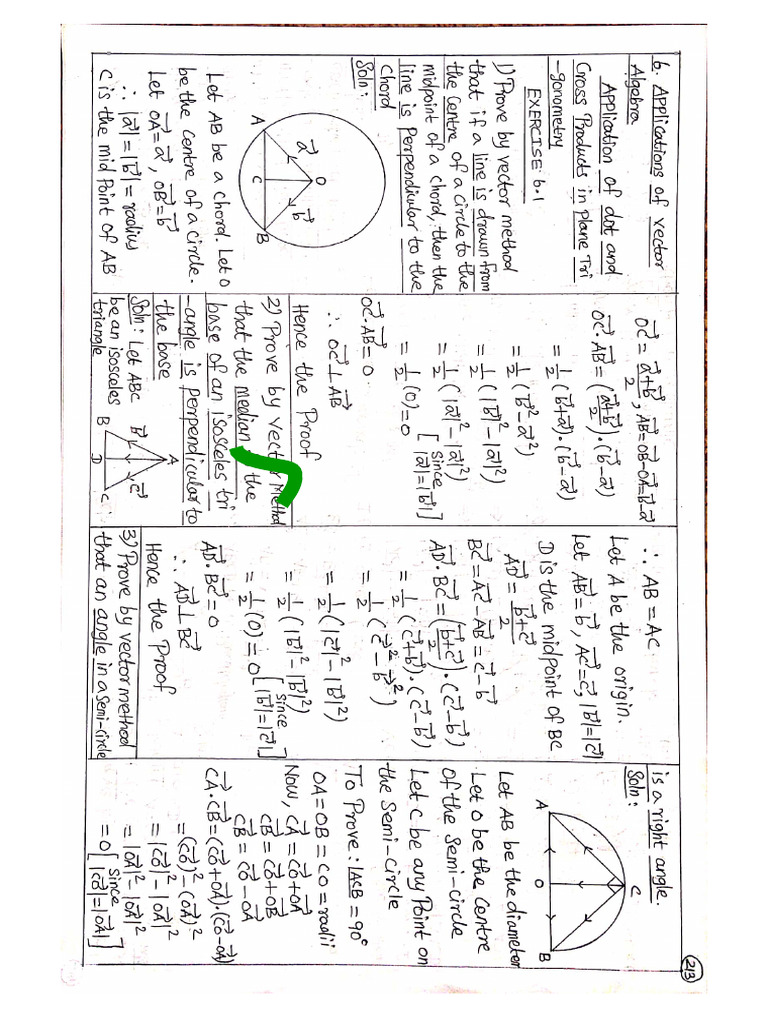 213
6. Applications of vector
Algebra
Application of dot and
Cross Products in plane Tri
-gonometry
EXERCISE 6.1
1) Prove by vector method
that if a line is drawn from
the centre of a circle to the
midpoint of a chord, then the
line is perpendicular to the
chord
Soln:
O
a⃗
b⃗
A
C
B
Let AB be a chord. Let O
be the centre of a circle.
Let OA⃗ = a⃗, OB⃗ = b⃗
∴ |a⃗| = |b⃗| = radius
C is the mid point of AB
OC⃗ = (a⃗+b⃗)/2, AB⃗ = OB⃗-OA⃗ = b⃗-a⃗
OC⃗·AB⃗ = ((a⃗+b⃗)/2)·(b⃗-a⃗)
= 1/2 (b⃗+a⃗)·(b⃗-a⃗)
= 1/2 (b⃗²-a⃗²)
= 1/2 (|b⃗|²-|a⃗|²)
= 1/2 (|a⃗|²-|a⃗|²)
= 1/2 (0) = 0 [Since |a⃗|=|b⃗|]
OC⃗·AB⃗ = 0
∴ OC⃗ ⊥ AB⃗
Hence the Proof
2) Prove by vector method
that the median the
base of an isosceles tri
-angle is perpendicular to
the base
Soln: Let ABC
be an isosceles
triangle
A
b⃗
c⃗
B
D
C
∴ AB = AC
Let A be the origin.
Let AB⃗ = b⃗, AC⃗ = c⃗, |b⃗| = |c⃗|
D is the midpoint of BC
AD⃗ = (b⃗+c⃗)/2
BC⃗ = AC⃗ - AB⃗ = c⃗-b⃗
AD⃗·BC⃗ = ((b⃗+c⃗)/2)·(c⃗-b⃗)
= 1/2 (c⃗+b⃗)·(c⃗-b⃗)
= 1/2 (c⃗²-b⃗²)
= 1/2 (|c⃗|²-|b⃗|²)
= 1/2 (|b⃗|²-|b⃗|²)
= 1/2 (0) = 0 [Since |b⃗|=|c⃗|]
AD⃗·BC⃗ = 0
∴ AD⃗ ⊥ BC⃗
Hence the Proof
3) Prove by vector method
that an angle in a semi-circle
is a right angle
Soln:
C
A
O
B
Let AB be the diameter
Let O be the centre
of the Semi-circle
Let C be any Point on
the Semi-circle
OA = OB = CO = radii
To Prove: ∠ACB = 90°
Now, CA⃗ = CO⃗ + OA⃗
CB⃗ = CO⃗ + OB⃗
CB⃗ = CO⃗ - OA⃗
CA⃗·CB⃗ = (CO⃗+OA⃗)·(CO⃗-OA⃗)
= (CO⃗)² - (OA⃗)²
= |CO⃗|² - |OA⃗|²
= |OA⃗|² - |OA⃗|²
= 0 [Since |CO⃗|=|OA⃗|]